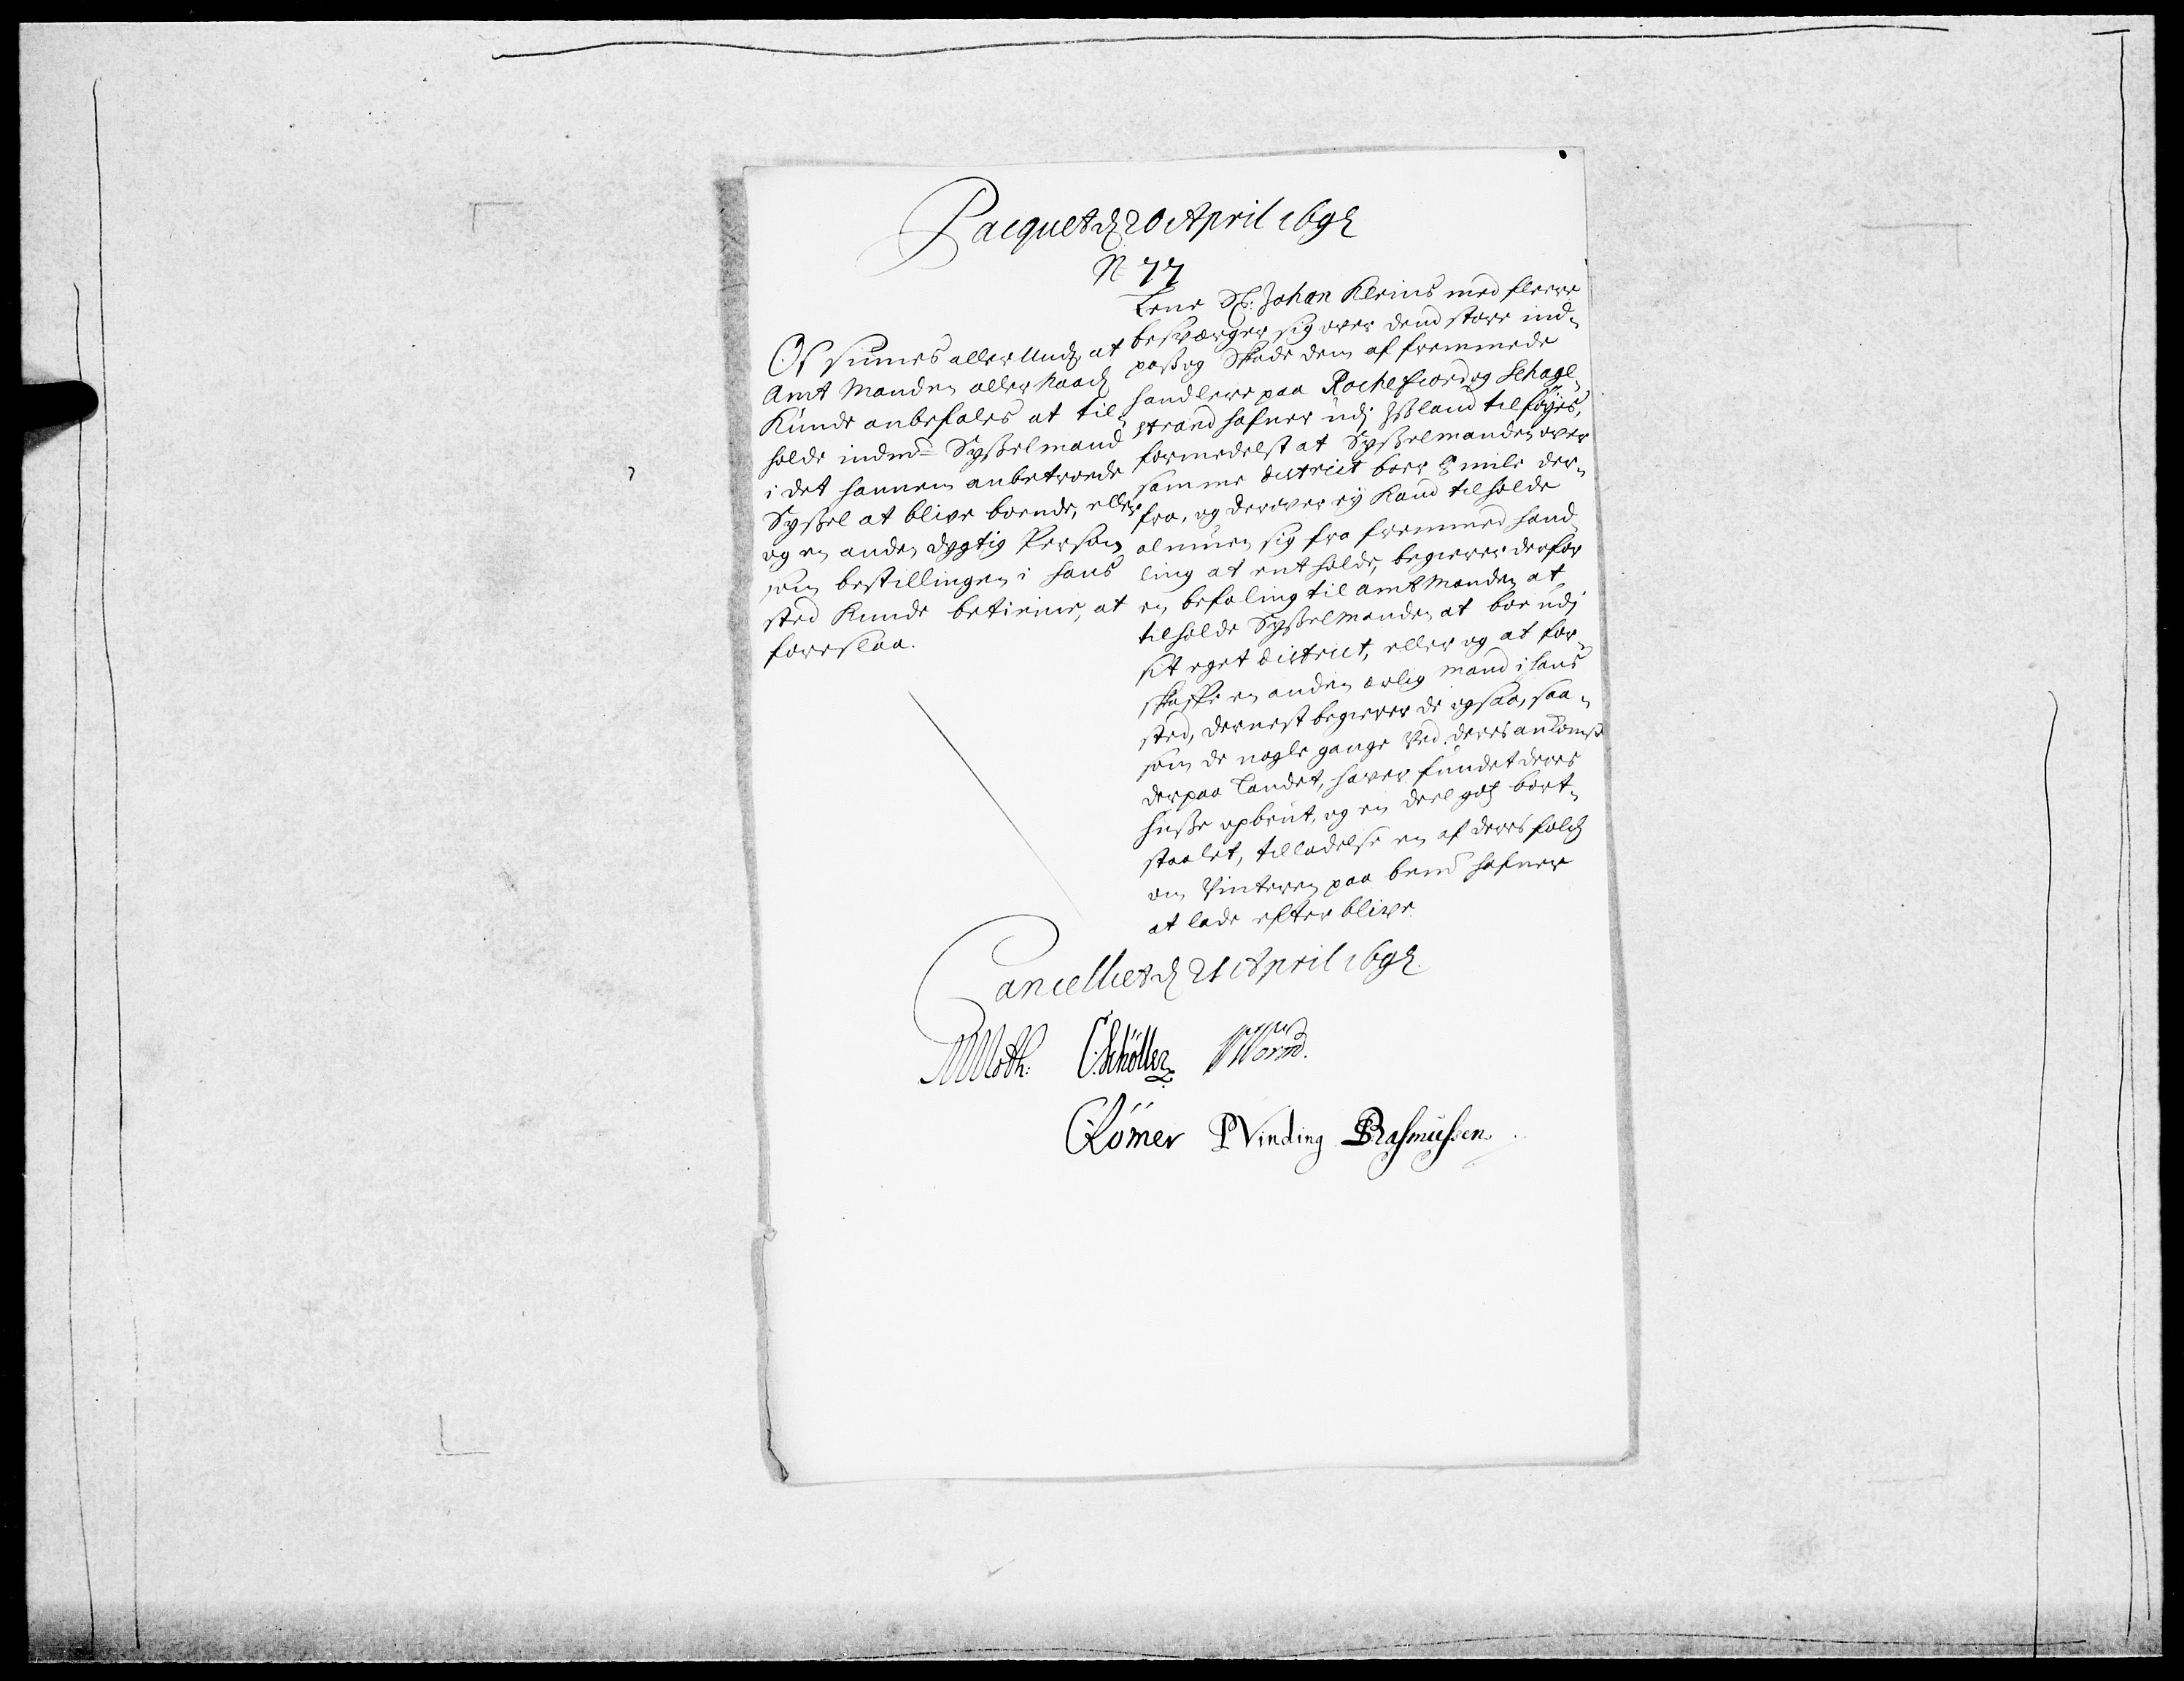 Pacquet d 20 April 1692
N 77
Lene Sl: Johan Kleins med flerre
besværger sig over dend store ind¬
pas og Skade dem af fremmede
handlere paa Rochefiord og Schage¬
strand hafner udj Ißland tilføyes,
formedelst at Sysselmanden over
samme district boer 8 mile der¬
fra, og derover ey kand tilholde
almuen sig fra fremmed hand¬
ling at entholde, begierer derfor
en befaling til amtmanden at
tilholde Sysselmanden at boe udj
sit eget district, eller og at for¬
skaffe en anden ærlig mand i hans
sted, dernest begierer de ogsaa, saa¬
som de nogle gange ved deres ankomst
der paa Landet, haver fundet deres
huuse opbrut, og en deel gods bort¬
staalet, tilladelse en af deres folch
om Vinteren paa bemte hafner
at lade efterblive.
Os siunes allerUnds at
Amt Manden allernaadst
Kunde anbefales at til¬
holde indmte Sysselmand
i det hannem anbetroede
Syssel at blive boende, eller
og en anden dygtig Person
som bestillingen i hans
sted kunde betiene, at
foreslaa.
Cancelliet d 21 April 1692.
MMoth: C:Schöller Worm.
CRömer PVinding BRasmussen.